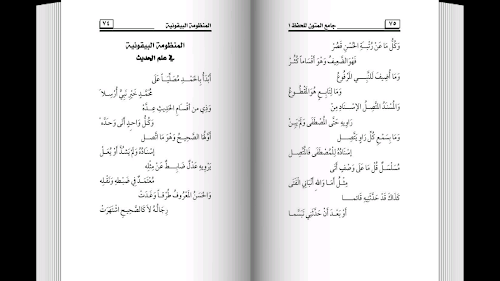 المنظومة البيقونية ٧٤
المنظومة البيقونية
في علم الحديث
أَبْدَأُ بِالحَمْدِ مُصَلِّيًا عَلَى
مُحَمَّدٍ خَيْرِ نَبِيٍّ أُرْسِلَا
وَذِي مِنَ أَقْسَامِ الحَدِيثِ عِدَّهْ
وَكُلُّ وَاحِدٍ أَتَى وَحَدَّهْ
أَوَّلُهَا الصَّحِيحُ وَهُوَ مَا اتَّصَلْ
إِسْنَادُهُ وَلَمْ يَشُذَّ أَوْ يُعَلْ
يَرْوِيهِ عَدْلٌ ضَابِطٌ عَنْ مِثْلِهِ
مُعْتَمَدٌ فِي ضَبْطِهِ وَنَقْلِهِ
وَالحَسَنُ المَعْرُوفُ طُرْقًا وَغَدَتْ
رِجَالُهُ لَا كَالصَّحِيحِ اشْتَهَرَتْ
٧٥ جامع المتون للحفظ ١
وَكُلُّ مَا عَنْ رُتْبَةِ الحُسْنِ قَصُرْ
فَهْوَ الضَّعِيفُ وَهُوَ أَقْسَامًا كُثُرْ
وَمَا أُضِيفَ لِلنَّبِيِّ المَرْفُوعُ
وَمَا لِتَابِعٍ هُوَ المَقْطُوعُ
وَالمُسْنَدُ المُتَّصِلُ الإِسْنَادِ مِنْ
رَاوِيهِ حَتَّى المُصْطَفَى وَلَمْ يَبِنْ
وَمَا بِسَمْعِ كُلِّ رَاوٍ يَتَّصِلْ
إِسْنَادُهُ لِلْمُصْطَفَى فَالمُتَّصِلْ
مُسَلْسَلٌ قُلْ مَا عَلَى وَصْفٍ أَتَى
مِثْلُ أَمَا وَاللهِ أَنْبَانِي الفَتَى
كَذَاكَ قَدْ حَدَّثَنِيهِ قَائِمَا
أَوْ بَعْدَ أَنْ حَدَّثَنِي تَبَسَّمَا